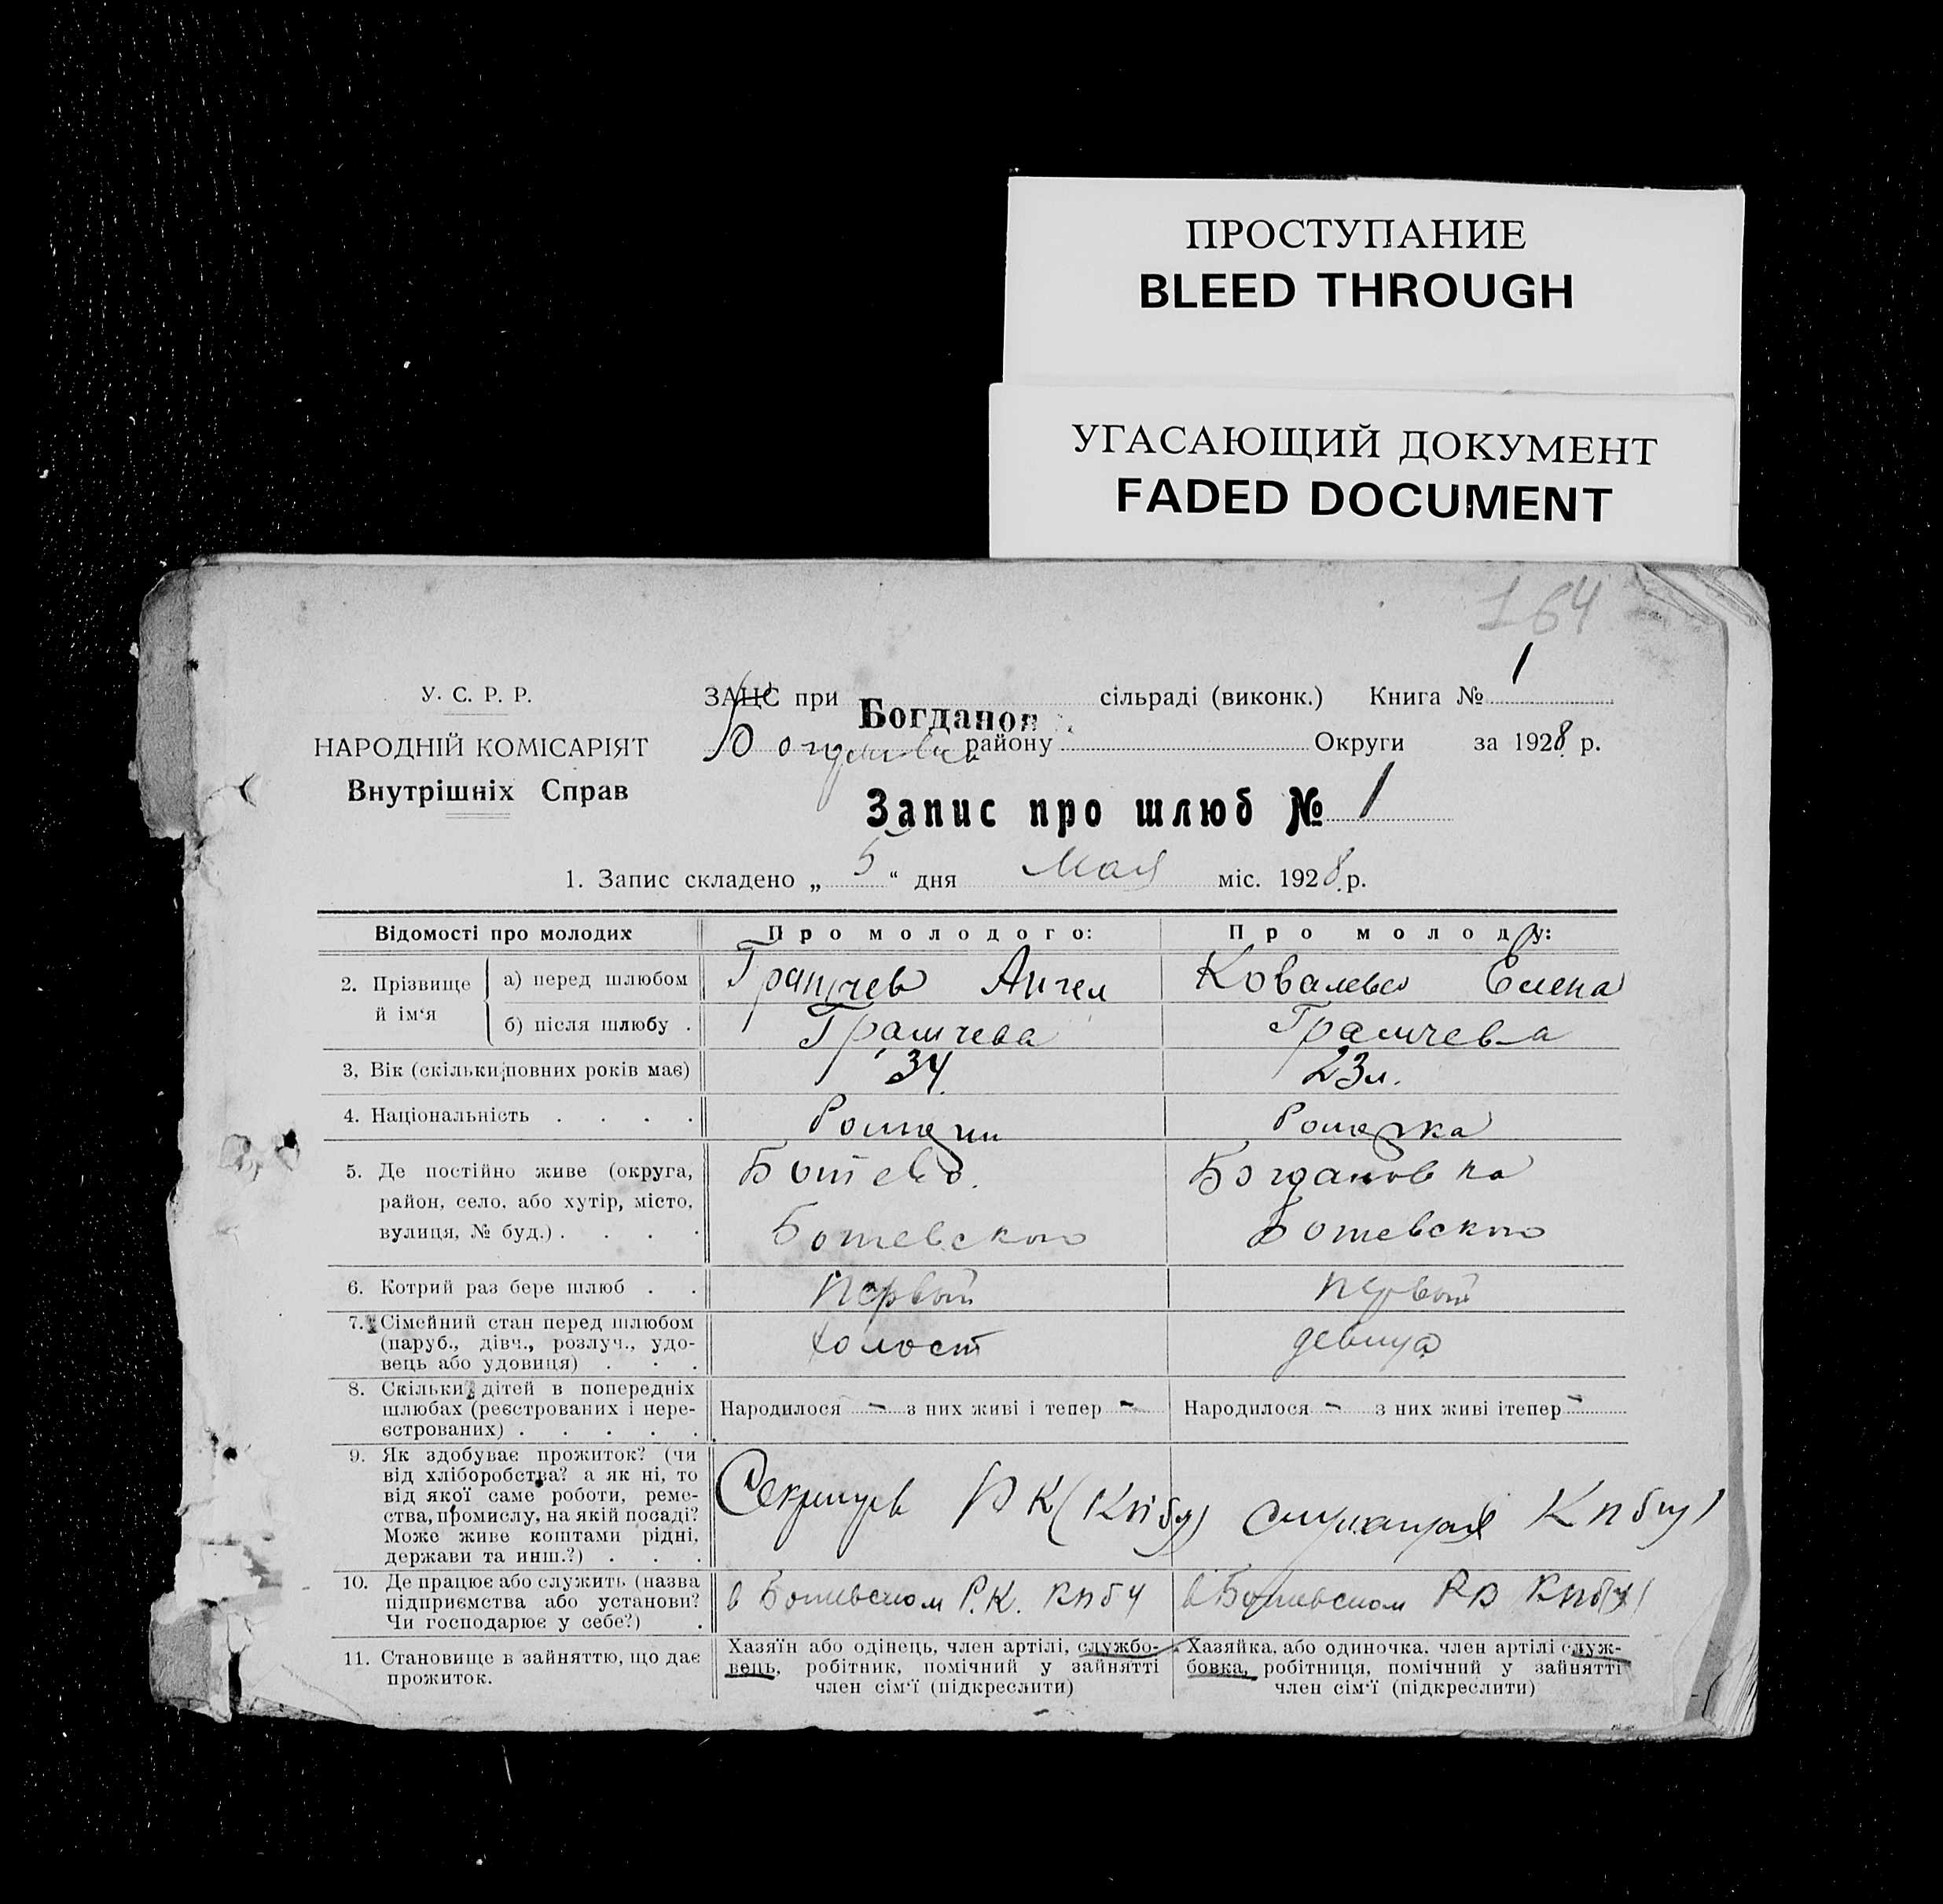 ПРОСТУПАНИЕ
BLEED THROUGH
УГАСАЮЩИЙ ДОКУМЕНТ
FADED DOCUMENT
164
У. С. Р. Р.
НАРОДНІЙ КОМІСАРІЯТ
Внутрішніх Справ
ЗАЦС при Богданов сільраді (виконк.) Книга № 1
району Округи за 1928 р.
Запис про шлюб № 1
1. Запис складено „ 5 “ дня Мая міс. 1928 р.
Відомості про молодих Про молодого: Про молоду:
2. Прізвище й ім‘я
а) перед шлюбом Ангел Елена
б) після шлюбу .
3, Вік (скільки повних років має) 34 23 л.
4. Національність . . . .
5. Де постійно живе (округа,
район, село, або хутір, місто,
вулиця, № буд.) . . . .
Ботево. Богдановка
Ботевского Ботевского
6. Котрий раз бере шлюб . . Первый первый
7. Сімейний стан перед шлюбом
(паруб., дівч., розлуч., удо-
вець або удовиця) . . .
холост девица
8. Скільки дітей в попередніх
шлюбах (реєстрованих і нере-
єстрованих) . . . . .
Народилося - з них живі і тепер - Народилося - з них живі ітепер -
9. Як здобуває прожиток? (чи
від хліборобства? а як ні, то
від якої саме роботи, реме-
ства, промислу, на якій посаді?
Може живе коштами рідні,
держави та инш.?) . . .
10. Де працює або служить (назва
підприємства або установи?
Чи господарює у себе?) .
в Ботевском Р.К. КПбУ в Ботевском КПбУ
11. Становище в зайняттю, що дає
прожиток.
Хазяїн або одінець, член артілі, службо-
вець, робітник, помічний у зайнятті
член сім‘ї (підкреслити)
Хазяйка, або одиночка, член артілі служ-
бовка, робітниця, помічний у зайнятті
член сім‘ї (підкреслити)